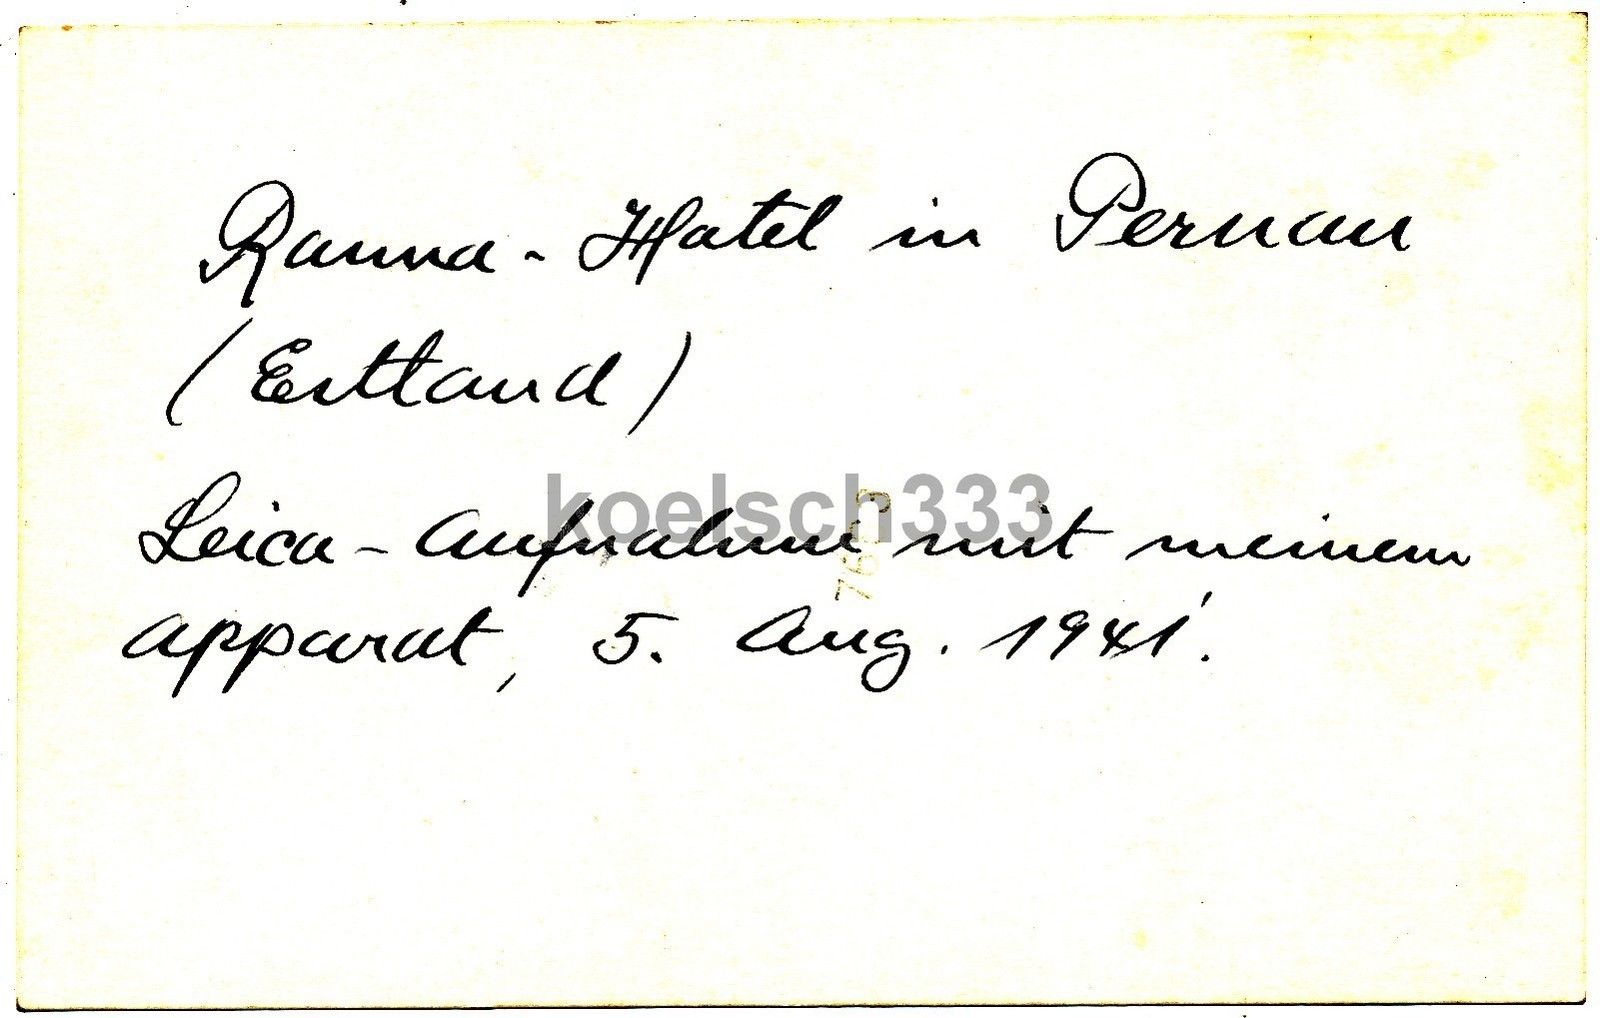 Ranna-Hotel in Pernau
(Estland)
koelsch333
Leica-Aufnahme mit meinem
Apparat, 5. Aug. 1941.